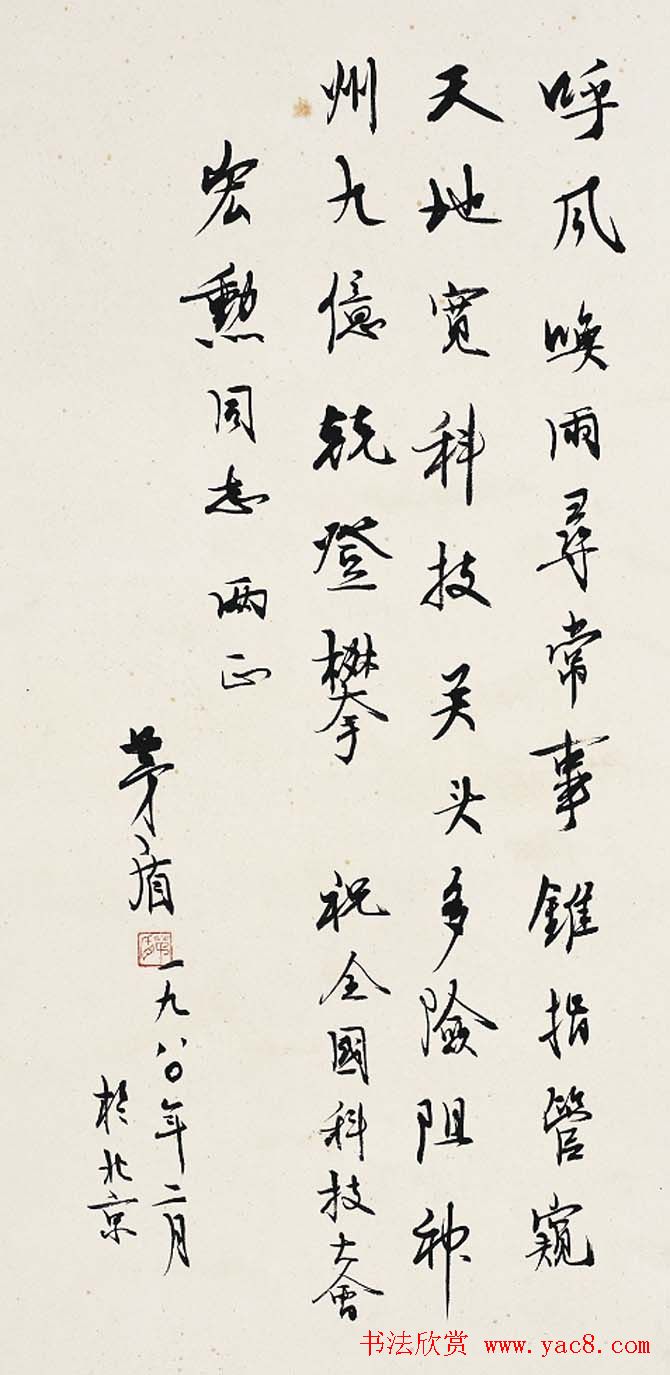 呼风唤雨寻常事錐指管窺
天地宽科技关头多險阻神
州九億兢登攀 祝全國科技大會
宏勳同志 两正
茅盾
一九八〇年二月
於北京
书法欣赏 www.yac8.com